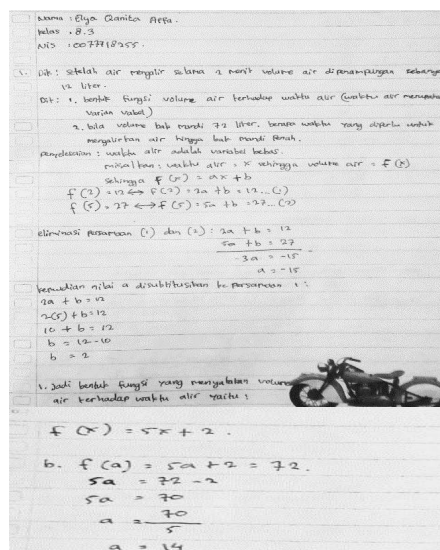 Nama : Elya Qanita Arfa.
Kelas : 8.3
NIS : 0077718255.
1. Dik : setelah air mengalir selama 2 menit volume air dipenampungan sebanyak
12 liter.
Dit : 1. bentuk fungsi volume air terhadap waktu alir (waktu alir merupakan
varian vabel)
2. bila volume bak mandi 72 liter. berapa waktu yang diperlu untuk
mengalirkan air hingga bak mandi penuh.
Penyelesaian : waktu alir adalah variabel bebas.
misalkan : waktu alir = x sehingga volume air = f(x)
sehingga f(x) = ax + b
f(2) = 12 ↔ f(2) = 2a + b = 12...(1)
f(5) = 27 ↔ f(5) = 5a + b = 27...(2)
eliminasi persamaan (1) dan (2) : 2a + b = 12
5a + b = 27
-3a = -15
a = -15
kemudian nilai a disubtitusikan ke persamaan 1 :
2a + b = 12
2(5) + b = 12
10 + b = 12
b = 12 - 10
b = 2
1. Jadi bentuk fungsi yang menyatakan volume
air terhadap waktu alir yaitu :
f(x) = 5x + 2.
b. f(a) = 5a + 2 = 72.
5a = 72 - 2
5a = 70
a = 70
5
a = 14